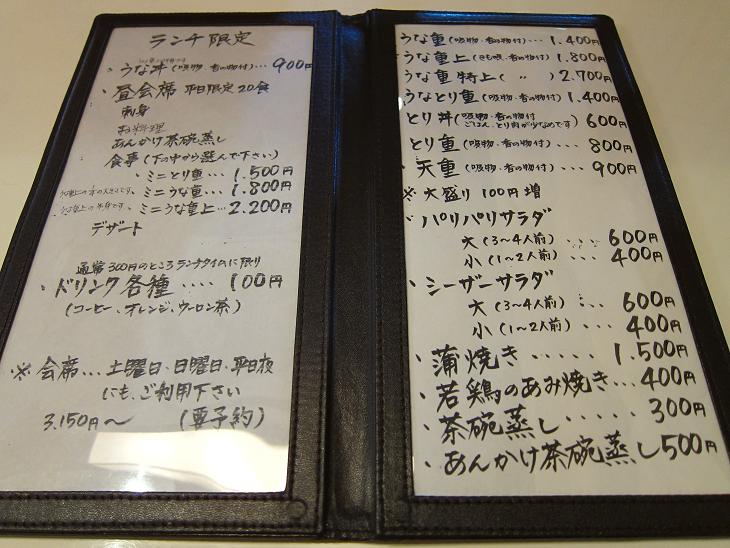 ランチ限定
・うな丼(吸物・香の物付)... 900円
・昼会席 平日限定20食
刺身
お料理
あんかけ茶碗蒸し
食事(下の中から選んで下さい)
・ミニとり重... 1.500円
・ミニうな重... 1.800円
・ミニうな重上... 2.200円
デザート
通常300円のところランチタイムに限り
・ドリンク各種.... 100円
(コーヒー、オレンジ、ウーロン茶)
※会席... 土曜日、日曜日、平日夜
にも、ご利用下さい
3.150円〜 (要予約)
うな重(吸物・香の物付)... 1.400円
・うな重上(きも吸・香の物付)... 1.800円
うな重特上( 〃 ) 2.700円
うなとり重(吸物・香の物付) 1.400円
・とり丼(吸物・香の物付 600円
ごはん、とり肉が少なめです)
・とり重(吸物・香の物付) 800円
・天重(吸物・香の物付) 900円
※大盛り100円増
・パリパリサラダ
大(3〜4人前)... 600円
小(1〜2人前)... 400円
・シーザーサラダ
大(3〜4人前) 600円
小(1〜2人前)... 400円
・蒲焼き.... 1.500円
・若鶏のあみ焼き... 400円
・茶碗蒸し..... 300円
・あんかけ茶碗蒸し 500円